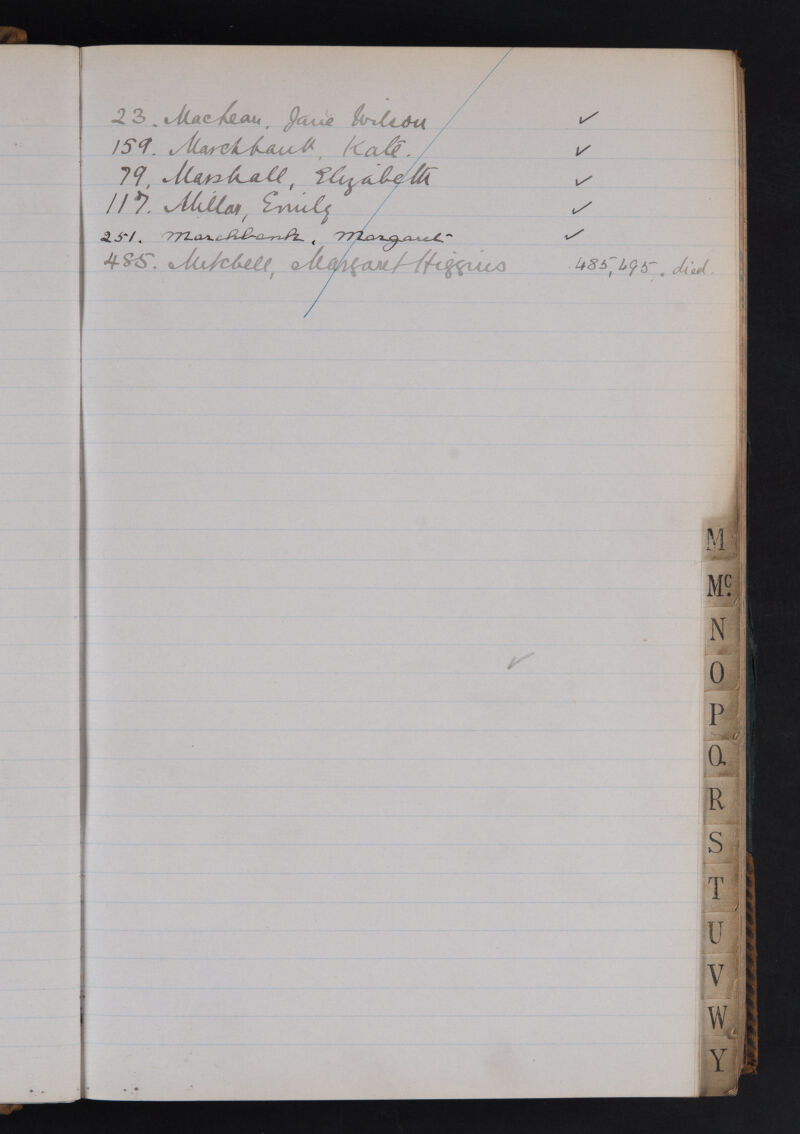 23. MacLean, Jane Wilson ✓
159. Marchbank, Kate. ✓
79, Marshall, Elizabeth ✓
117. Millar, Emily ✓
251. Marchbank, Margaret ✓
485. Mitchell, Margaret Higgins 485, 495. died.
M
Mc.
N
O
P
Q
R
S
T
U
V
W
Y